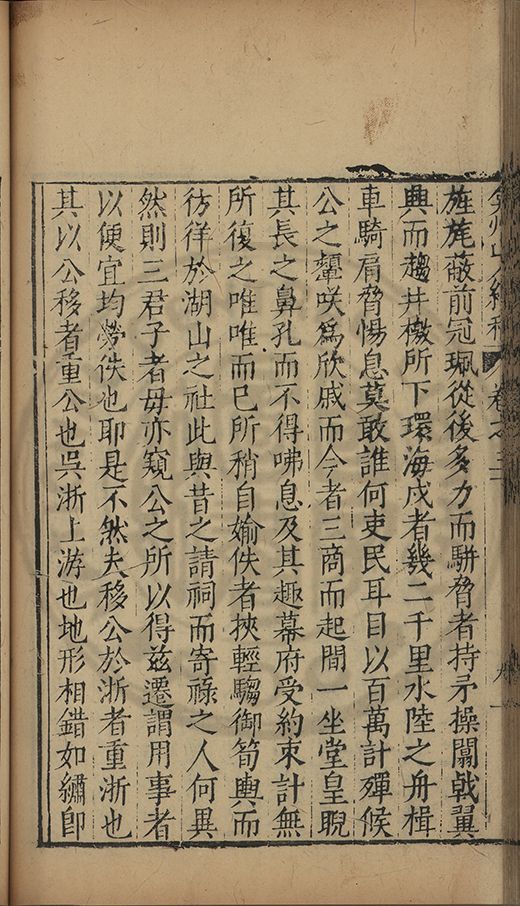 弇州山人續稿 卷之三 九
旌旄蔽前冠珮從後多力而駢脅者持矛操闟戟翼
輿而趨井檄所下環海戍者幾二千里水陸之舟楫
車騎肩脅惕息莫敢誰何吏民耳目以百萬計殫候
公之顰咲爲欣戚而今者三商而起間一坐堂皇睨
其長之鼻孔而不得咈息及其趣幕府受約束計無
所復之唯唯而已所稍自婾佚者挾輕騶御筍輿而
彷徉於湖山之社此與昔之請祠而寄祿之人何異
然則三君子者毋亦窺公之所以得茲遷謂用事者
以便宜均勞佚也耶是不然夫移公於浙者重浙也
其以公移者重公也吳浙上游也地形相錯如繡卽